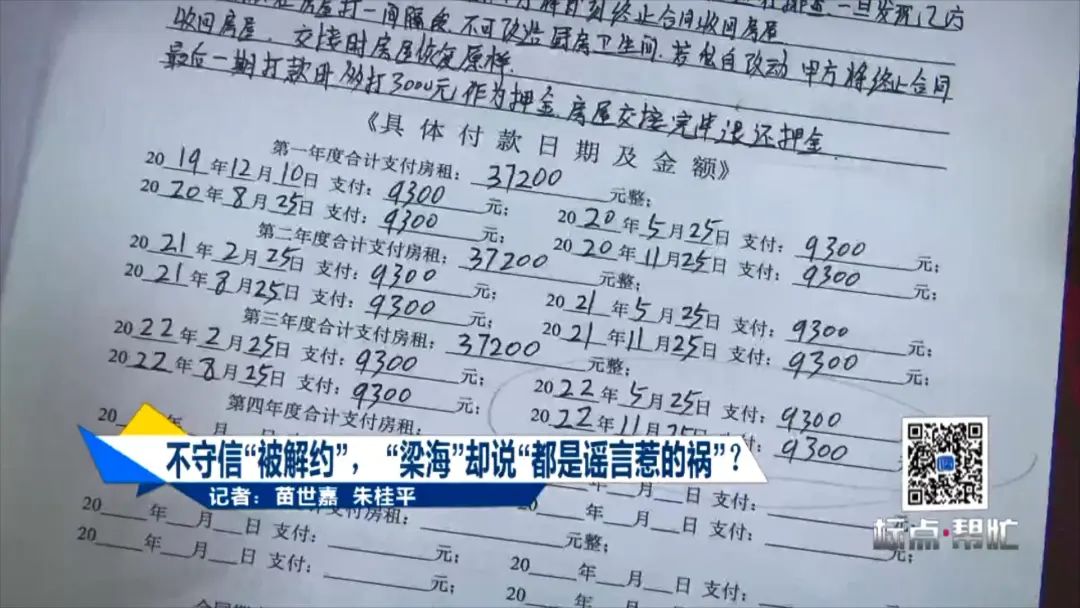 终止合同收回房屋
一旦发现,乙方
打一间隔段,不可改造厨房卫生间.若私自改动 甲方将终止合同
收回房屋.交接时房屋恢复原样.
最后一期打款时多打3000元作为押金.房屋交接完毕退还押金.
《具体付款日期及金额》
第一年度合计支付房租:37200元整;
2019年12月10日 支付:9300元; 2020年5月25日 支付:9300
2020年8月25日 支付:9300元; 2020年11月25日 支付:9300元;
第二年度合计支付房租:37200元整;
2021年2月25日 支付:9300元; 2021年5月25日 支付:9300
2021年8月25日 支付:9300元; 2021年11月25日 支付:9300元;
第三年度合计支付房租:37200元整;
2022年2月25日 支付:9300元; 2022年5月25日 支付:9300
2022年8月25日 支付:9300元; 2022年11月25日 支付:9300
第四年度合计支付房租:
不守信“被解约”,“梁海”却说“都是谣言惹的祸”?
记者:苗世嘉 朱桂平
标点·帮忙
支付房租:元整;
20 年 月 日 支付: 元; 年 月 日 支付: 元;
20 年 月 日 支付: 元; 20 年 月 日 支付: 元;